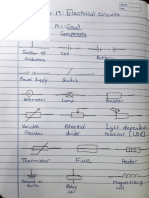 19: Electrical circuits
19.1: Circuit
Components
Junction of Cell Battery
conductors
Power Supply Switch
Voltmeter Lamp Resistor
Variable Potential Light dependent
resistor divider resistor (LDR)
Thermistor Fuse Heater
Ground or earth Relay coil Magnetising coil